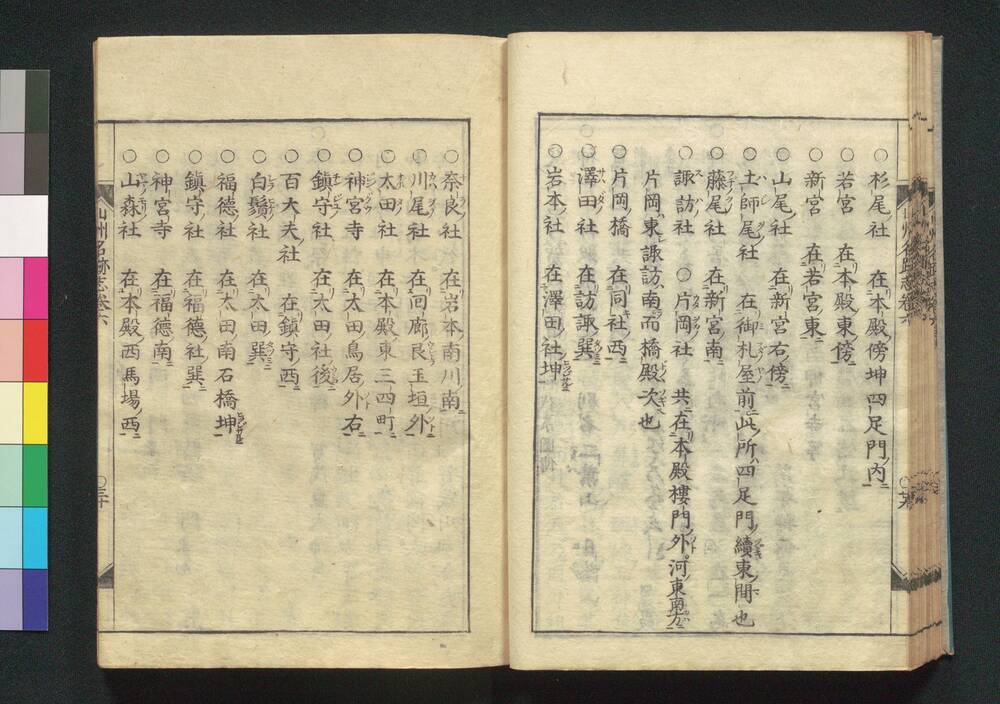 ○杉尾社 在本殿傍坤四足門内
○若宮 在本殿東傍
○新宮 在若宮東
○山尾社 在新宮右傍
○土師尾社 在御札屋前此所四足門續東間也
○藤尾社 在新宮南
○諏訪社 ○片岡社 共在本殿樓門外河東南方
片岡東諏訪南而橋殿次也
○片岡橋 在同社西
○澤田社 在訪諏巽
○岩本社 在澤田社坤
○奈良社 在岩本南川南
○川尾社 在回廊艮玉垣外
○太田社 在本殿東三四町
○神宮寺 在太田鳥居外右
○鎮守社 在太田社後
百大夫社 在鎮守西
○白鬚社 在太田巽
○福德社 在太田南石橋坤
○鎮守社 在福德社巽
○神宮寺 在福德南
○山森社 在本殿西馬場西
山州名跡志卷六
○三十